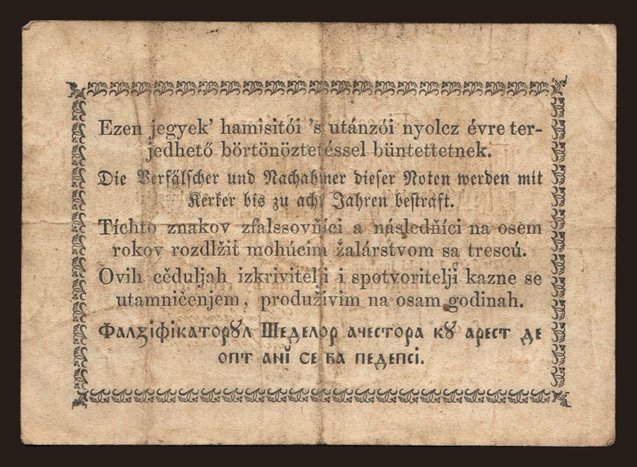 Ezen jegyek’ hamisitói ’s utánzói nyolcz évre ter-
jedhető börtönöztetéssel büntettetnek.
Die Verfälscher und Nachahmer dieser Noten werden mit
Kerker bis zu acht Jahren bestraft.
Tíchto znakov zfalssovňíci a násleďňíci na osem
rokov rozdlžiť mohúcim žalárstvom sa trescú.
Ovih cěduljah izkrivitelji i spotvoritelji kazne se
utamničenjem, produživim na osam godinah.
Фалꙁіфікаторꙋл Шеделор ачестора кꙋ арест де
опт анĭ се ва педепсі.